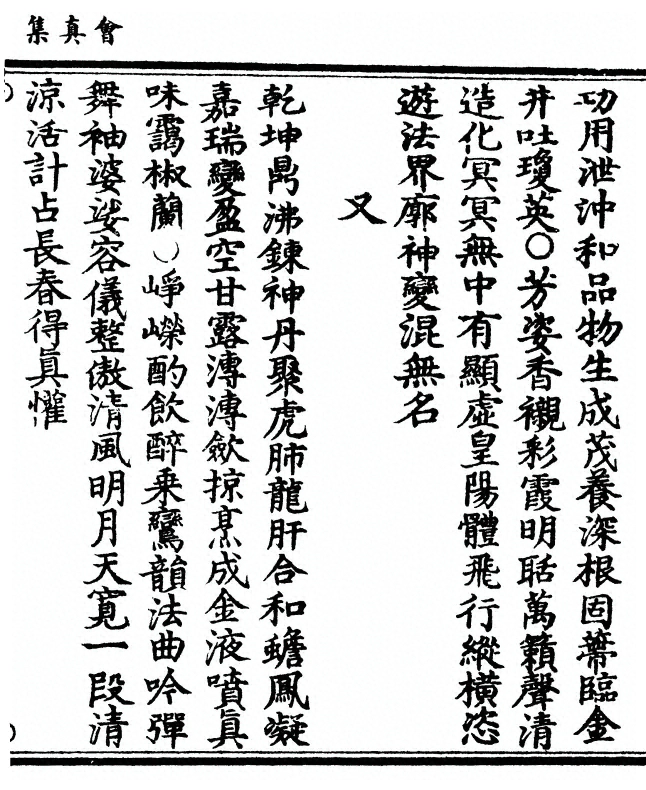 會真集
功用泄沖和品物生成茂養深根固蔕臨金
井吐瓊英〇芳姿香襯彩霞明聒萬籟聲清
造化冥冥無中有顯虛皇陽體飛行縱橫恣
遊法界廓神變混無名
又
乾坤鼎沸鍊神丹聚虎肺龍肝合和蟾鳳凝
嘉瑞變盈空甘露漙漙歛掠烹成金液噴真
味靄椒蘭〇崢嶸酌飲醉乗鸞韻法曲吟彈
舞袖婆娑容儀整傲清風明月天寛一段清
涼活計占長春得真懽